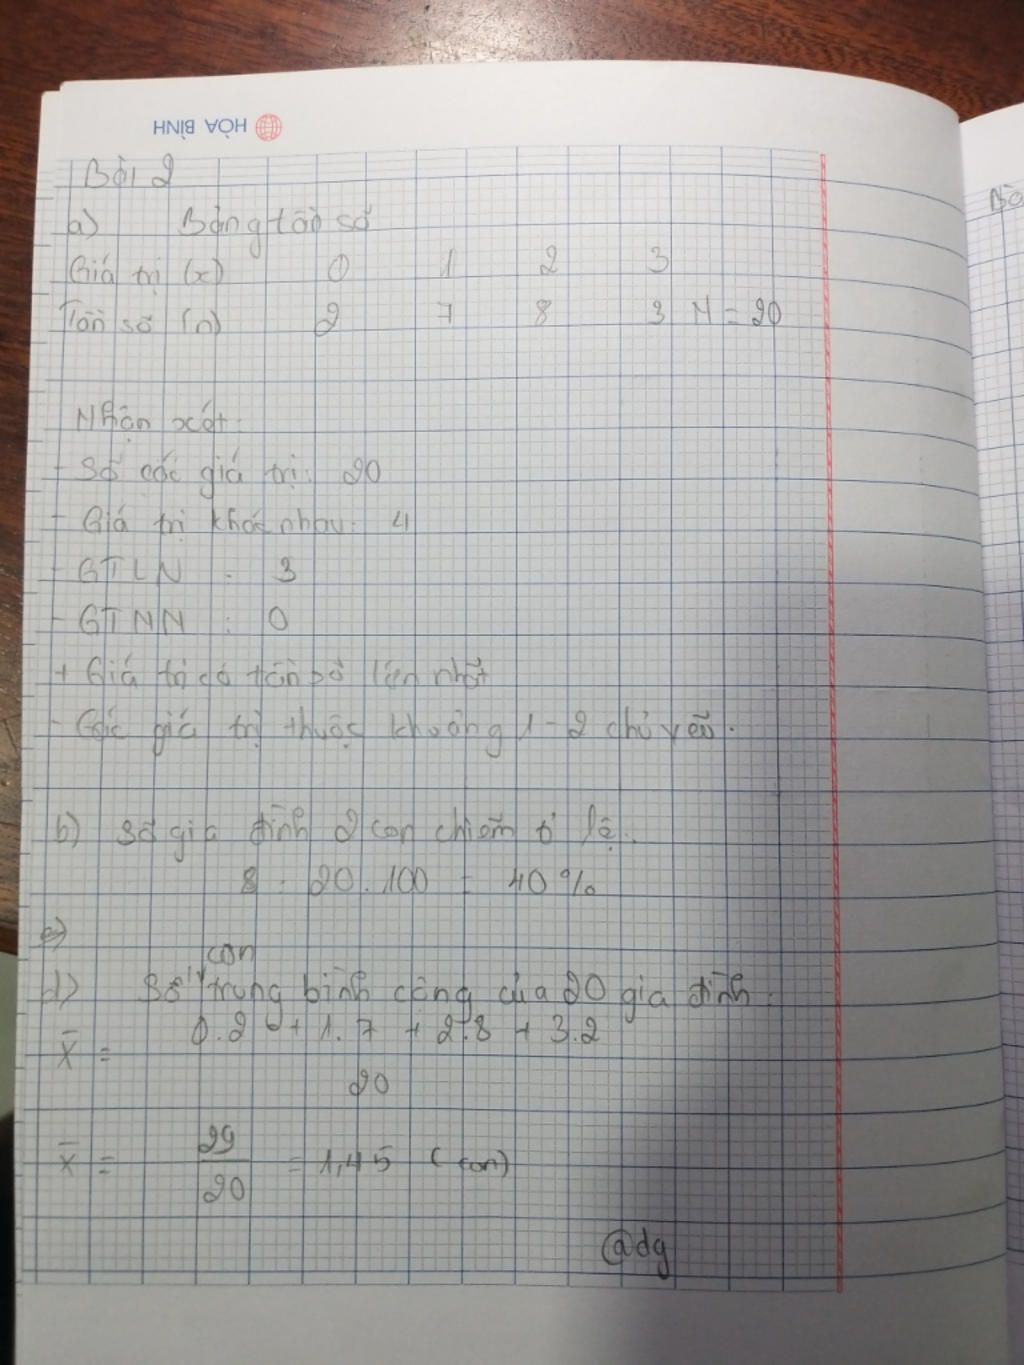 HÒA BÌNH
Bài 2
a) Bảng tần số
Giá trị (x) 0 1 2 3
Tần số (n) 2 7 8 3 N = 20
Nhận xét:
- Số các giá trị: 20
- Giá trị khác nhau: 4
- GTLN : 3
- GTNN : 0
+ Giá trị có tần số lớn nhất
- Các giá trị thuộc khoảng 1-2 chủ yếu.
b) Số gia đình 2 con chiếm tỉ lệ:
8 : 20.100 = 40%
c)
con
d) Số trung bình cộng của 20 gia đình:
0.2 + 1.7 + 2.8 + 3.2
X̄ =
20
29
X̄ = = 1,45 (con)
20
@dg